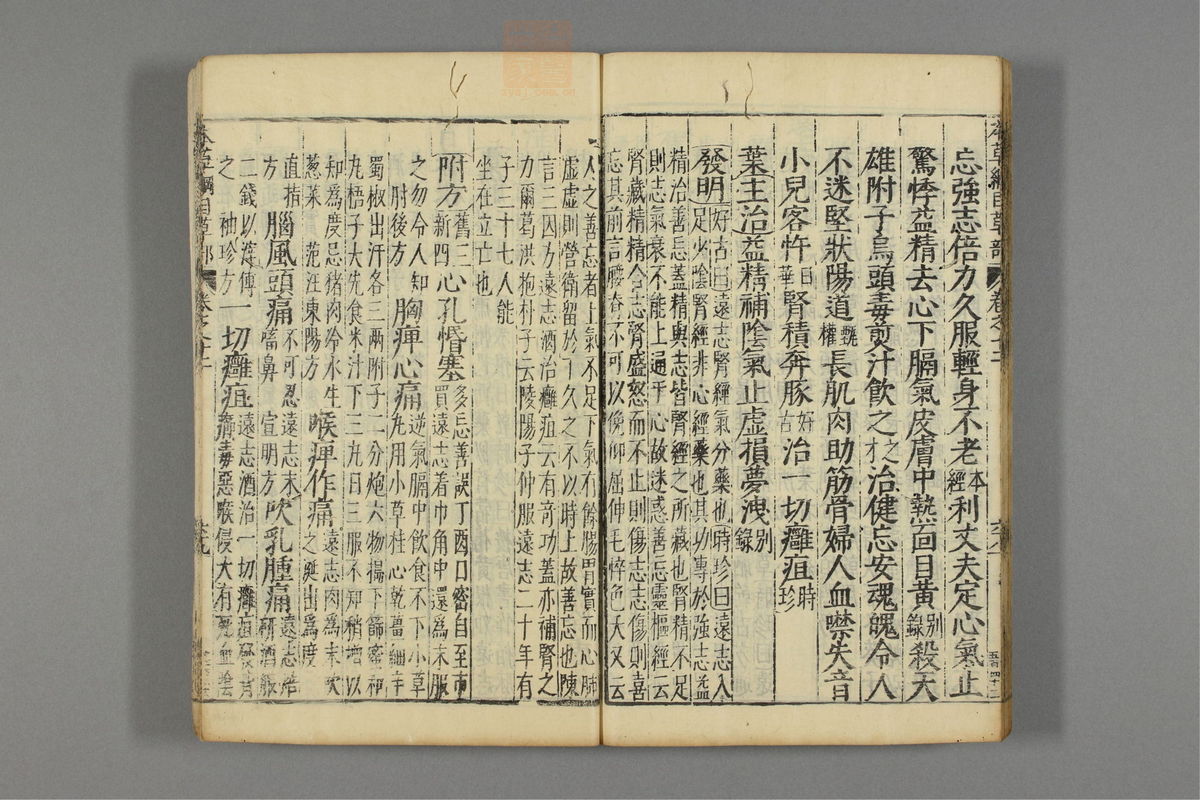 忘強志倍力久服輕身不老本經利丈夫定心氣止
驚悸益精去心下膈氣皮膚中熱面目黃別錄殺天
雄附子烏頭毒煎汁飲之之才治健忘安魂魄令人
不迷堅狀陽道甄權長肌肉助筋骨婦人血噤失音
小兒客忤日華腎積奔豚好古治一切癰疽時珍
葉主治益精補陰氣止虛損夢洩別錄
發明好古曰遠志腎經氣分藥也時珍曰遠志入
足少陰腎經非心經藥也其功專於強志益
精治善忘蓋精與志皆腎經之所藏也腎精不足
則志氣衰不能上通于心故迷惑善忘靈樞經云
腎藏精精合志腎盛怒而不止則傷志志傷則喜
忘其前言腰脊不可以俛仰屈伸毛悴色夭又云
人之善忘者上氣不足下氣有餘腸胃實而心肺
虛虛則營衛留於下久之不以時上故善忘也陳
言三因方遠志酒治癰疽云有奇功蓋亦補腎之
力爾葛洪抱朴子云陵陽子仲服遠志二十年有
子三十七人能
坐在立亡也
附方舊三新四心孔惛塞多忘善誤丁酉日密自至市
買遠志着巾角中還為末服
之勿令人知
肘後方胸痺心痛逆氣膈中飲食不下小草
丸用小草桂心乾薑細辛
蜀椒出汗各三兩附子二分炮六物搗下篩蜜和
丸梧子大先食米汁下三丸日三服不知稍增以
知為度忌豬肉冷水生
葱菜 范汪東陽方喉痺作痛遠志肉為末吹
之涎出為度
直指方腦風頭痛不可忍遠志末
㗜鼻 宣明方吹乳腫痛遠志焙
研酒服
二錢以滓傅
之 袖珍方一切癰疽遠志酒治一切癰疽發背
癤毒惡候侵大有死血陰
本草綱目草部 卷之十二